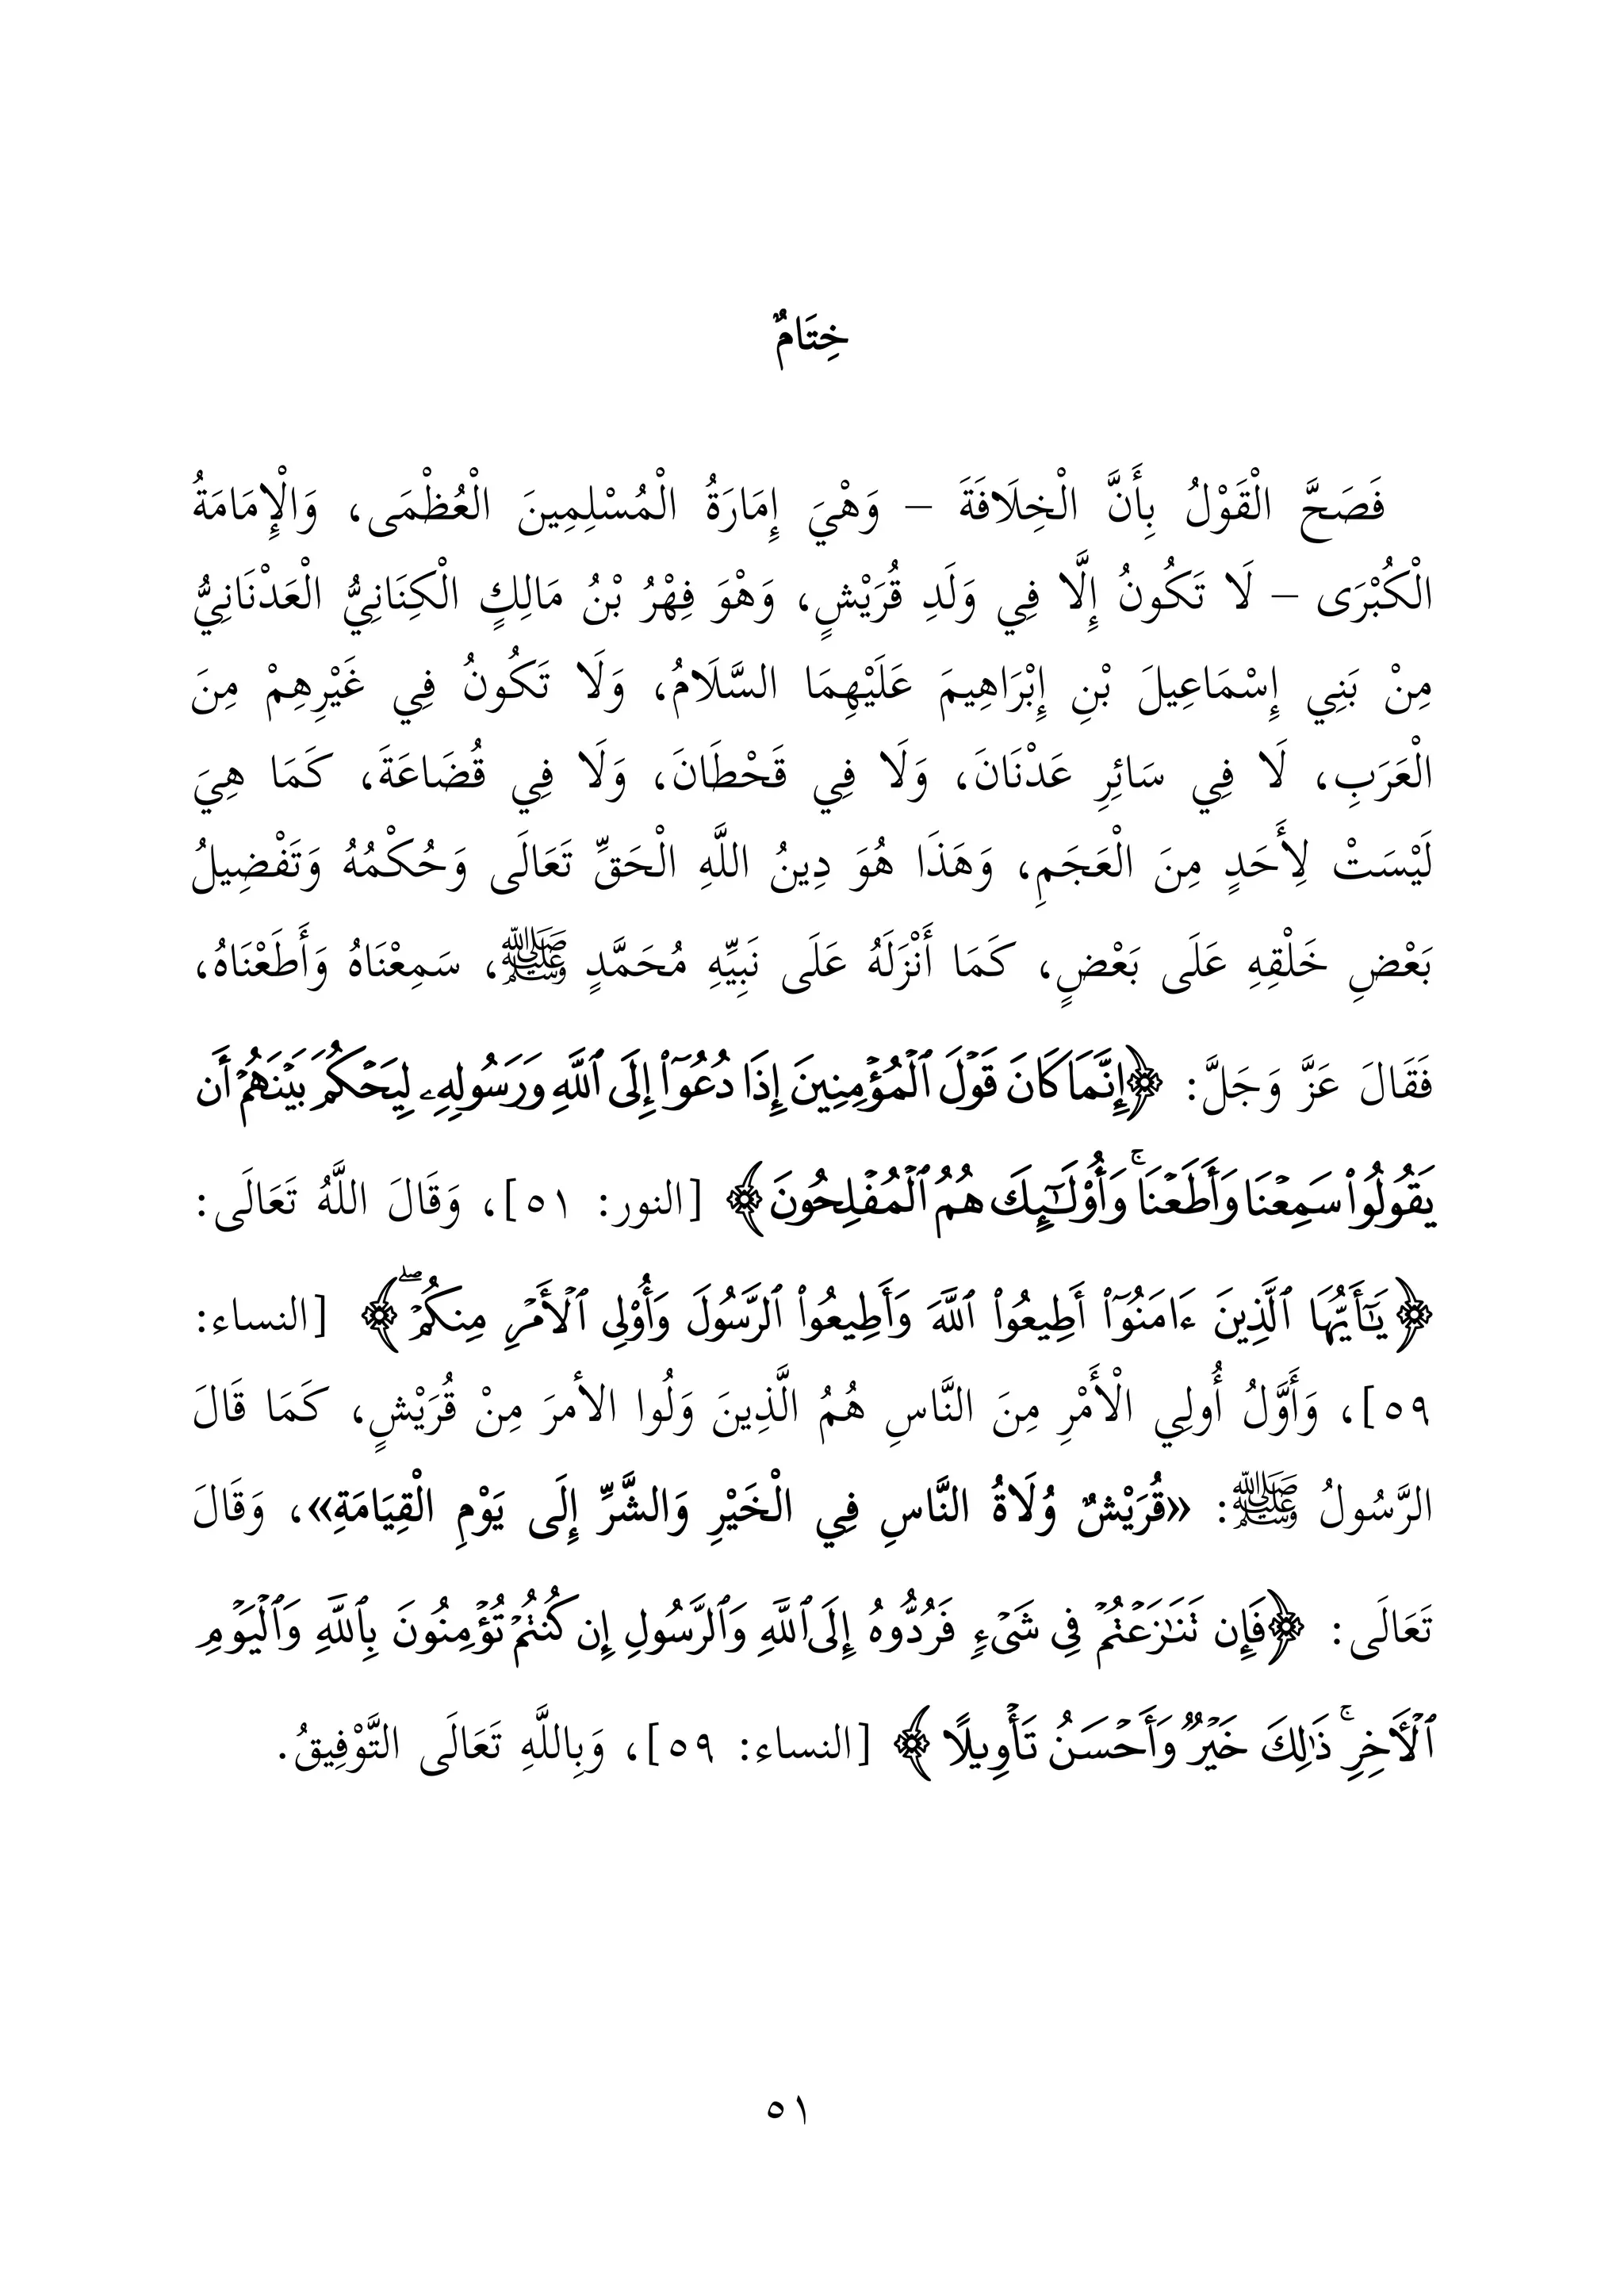 خِتَامٌ
فَصَحَّ الْقَوْلُ بِأَنَّ الْخِلَافَةَ – وَهْيَ إِمَارَةُ الْمُسْلِمِينَ الْعُظْمَى، وَالْإِمَامَةُ
الْكُبْرَى – لَا تَكُونُ إِلَّا فِي وَلَدِ قُرَيْشٍ، وَهْوَ فِهْرُ بْنُ مَالِكٍ الْكِنَانِيُّ الْعَدْنَانِيُّ
مِنْ بَنِي إِسْمَاعِيلَ بْنِ إِبْرَاهِيمَ عَلَيْهِمَا السَّلَامُ، وَلَا تَكُونُ فِي غَيْرِهِمْ مِنَ
الْعَرَبِ، لَا فِي سَائِرِ عَدْنَانَ، وَلَا فِي قَحْطَانَ، وَلَا فِي قُضَاعَةَ، كَمَا هِيَ
لَيْسَتْ لِأَحَدٍ مِنَ الْعَجَمِ، وَهَذَا هُوَ دِينُ اللَّهِ الْحَقِّ تَعَالَى وَحُكْمُهُ وَتَفْضِيلُ
بَعْضِ خَلْقِهِ عَلَى بَعْضٍ، كَمَا أَنْزَلَهُ عَلَى نَبِيِّهِ مُحَمَّدٍ ﷺ، سَمِعْنَاهُ وَأَطَعْنَاهُ،
فَقَالَ عَزَّ وَجَلَّ: ﴿إِنَّمَا كَانَ قَوْلَ ٱلْمُؤْمِنِينَ إِذَا دُعُوٓا۟ إِلَى ٱللَّهِ وَرَسُولِهِۦ لِيَحْكُمَ بَيْنَهُمْ أَن
يَقُولُوا۟ سَمِعْنَا وَأَطَعْنَا ۚ وَأُو۟لَـٰٓئِكَ هُمُ ٱلْمُفْلِحُونَ﴾ [النور: ٥١]، وَقَالَ اللَّهُ تَعَالَى:
﴿يَـٰٓأَيُّهَا ٱلَّذِينَ ءَامَنُوٓا۟ أَطِيعُوا۟ ٱللَّهَ وَأَطِيعُوا۟ ٱلرَّسُولَ وَأُو۟لِى ٱلْأَمْرِ مِنكُمْ ۖ﴾ [النساء:
٥٩]، وَأَوَّلُ أُولِي الْأَمْرِ مِنَ النَّاسِ هُمُ الَّذِينَ وَلُوا الأمرَ مِنْ قُرَيْشٍ، كَمَا قَالَ
الرَّسُولُ ﷺ: «قُرَيْشٌ وُلَاةُ النَّاسِ فِي الْخَيْرِ وَالشَّرِّ إِلَى يَوْمِ الْقِيَامَةِ»، وَقَالَ
تَعَالَى: ﴿فَإِن تَنَـٰزَعْتُمْ فِى شَىْءٍ فَرُدُّوهُ إِلَى ٱللَّهِ وَٱلرَّسُولِ إِن كُنتُمْ تُؤْمِنُونَ بِٱللَّهِ وَٱلْيَوْمِ
ٱلْـَٔاخِرِ ۚ ذَٰلِكَ خَيْرٌ وَأَحْسَنُ تَأْوِيلًا﴾ [النساء: ٥٩]، وَبِاللَّهِ تَعَالَى التَّوْفِيقُ.
٥١